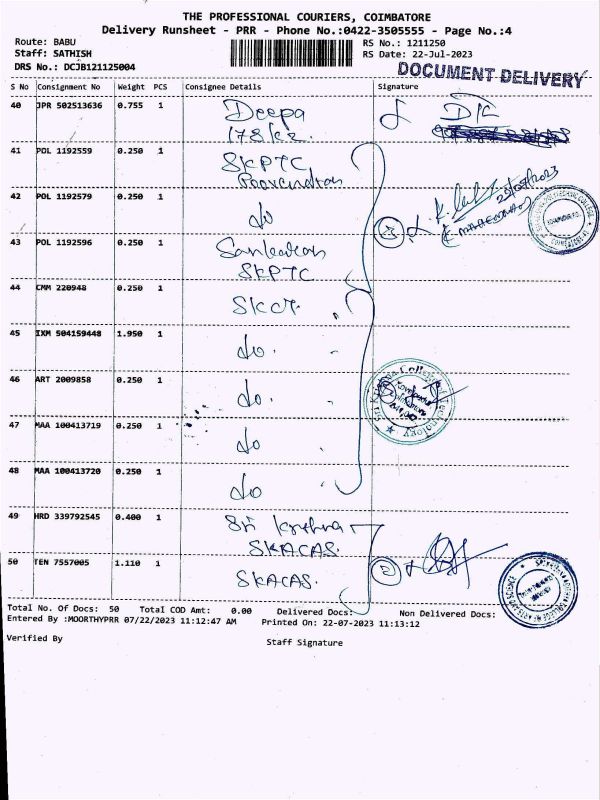 THE PROFESSIONAL COURIERS, COIMBATORE
Delivery Runsheet - PRR - Phone No.:0422-3505555 - Page No.:4
Route: BABU
RS No.: 1211250
Staff: SATHISH
RS Date: 22-Jul-2023
DRS No.: DCJB121125004
DOCUMENT DELIVERY
S No Consignment No Weight PCS Consignee Details Signature
40 JPR 502513636 0.755 1 Deepa
178/K2.
41 POL 1192559 0.250 1 SKPTC
Poovendran
42 POL 1192579 0.250 1 do
22/07/2023
43 POL 1192596 0.250 1 Sankaran
SKPTC
44 CMM 220948 0.250 1 SKCT.
45 IXM 504159448 1.950 1 do.
46 ART 2009858 0.250 1 do.
47 MAA 100413719 0.250 1 do
48 MAA 100413720 0.250 1 do
49 HRD 339792545 0.400 1 Sri Krishna
SKACAS.
50 TEN 7557005 1.110 1 SKACAS. 2
Total No. Of Docs: 50 Total COD Amt: 0.00 Delivered Docs: Non Delivered Docs:
Entered By :MOORTHYPRR 07/22/2023 11:12:47 AM Printed On: 22-07-2023 11:13:12
Verified By Staff Signature